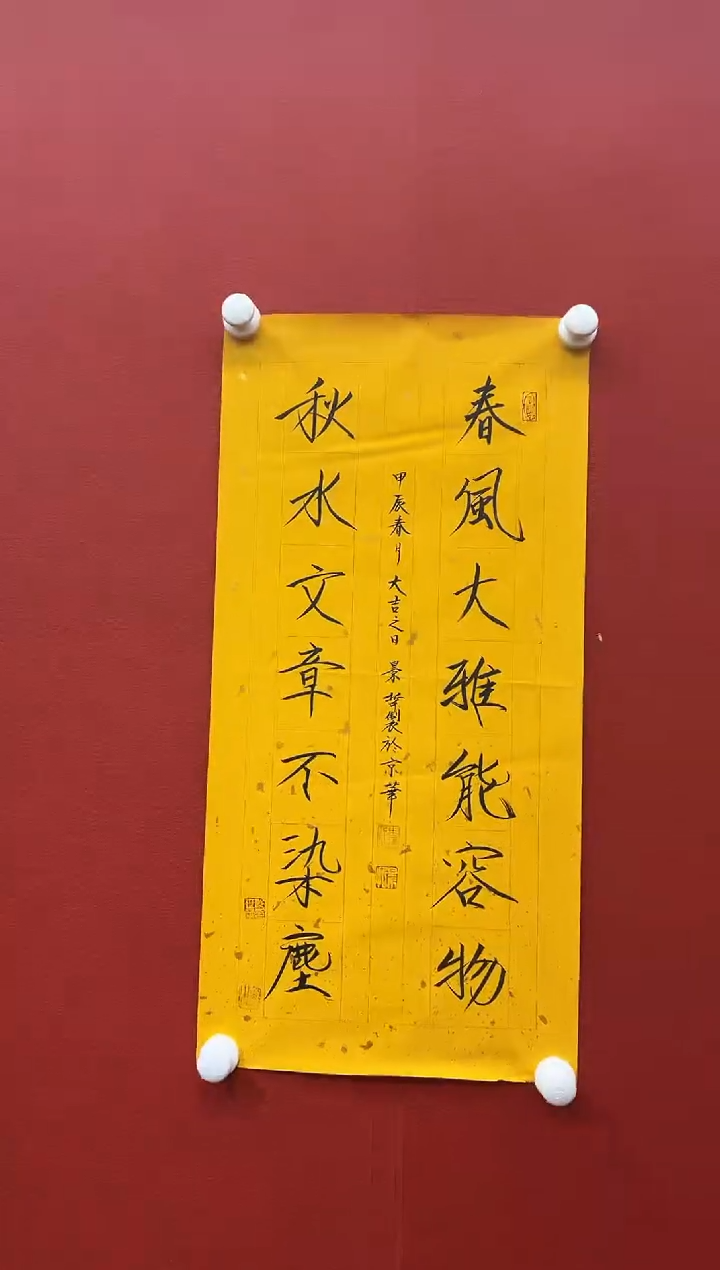 春風大雅能容物
甲辰春月大吉之日 製於京華
秋水文章不染塵